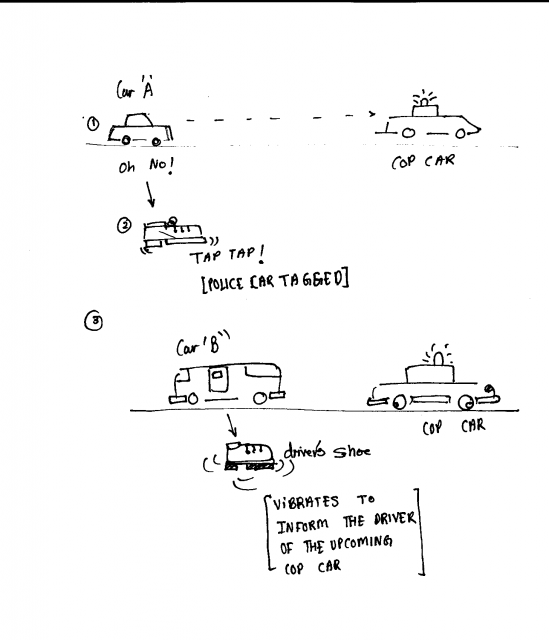 Car "A"
①
Oh No!
COP CAR
②
TAP TAP!
[POLICE CAR TAGGED]
③
Car 'B"
COP CAR
driver's shoe
VIBRATES TO
INFORM THE DRIVER
OF THE UPCOMING
COP CAR